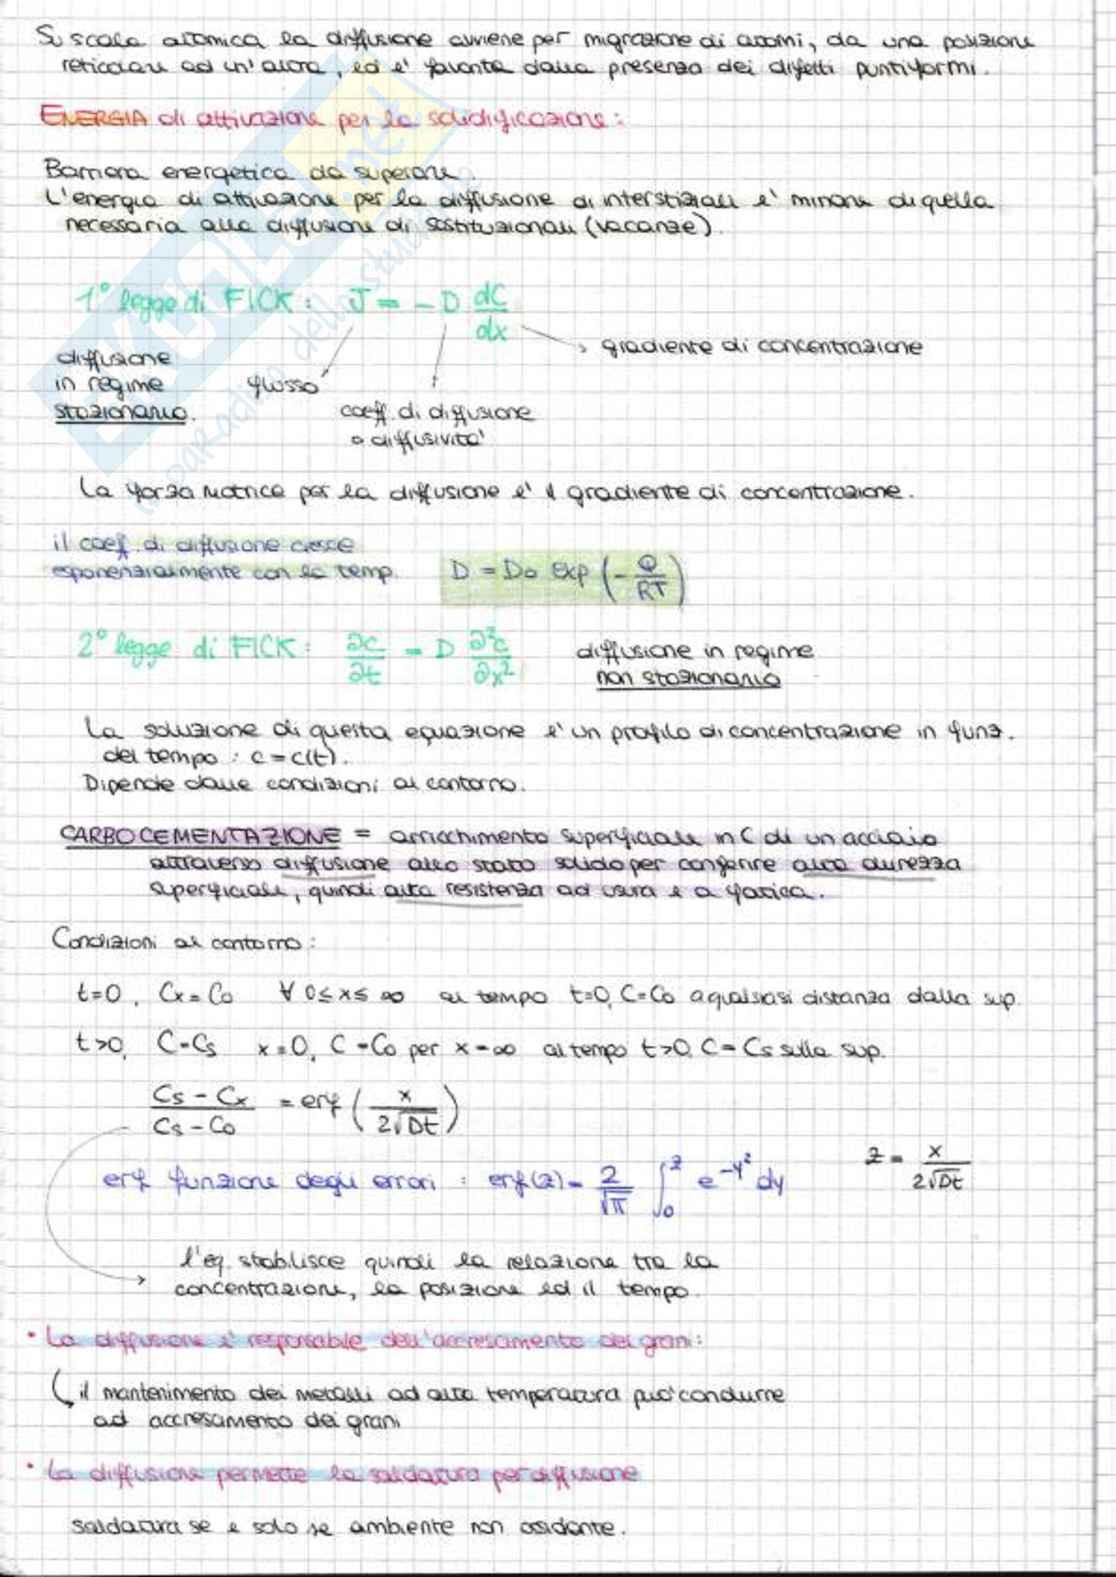 Su scala atomica la diffusione avviene per migrazione di atomi, da una posizione
reticolare ad un'altra, ed e' favorita dalla presenza dei difetti puntiformi.
ENERGIA di attivazione per la solidificazione:
Barriera energetica da superare.
L'energia di attivazione per la diffusione di interstiziali e' minore di quella
necessaria alla diffusione di sostituzionali (vacanze).
1° legge di FICK: J = - D dC/dx
gradiente di concentrazione
diffusione
in regime
stazionario.
flusso
coeff. di diffusione
o diffusivita'
La forza motrice per la diffusione e' il gradiente di concentrazione.
il coeff. di diffusione cresce
esponenzialmente con la temp.
D = Do exp (- Q/RT)
2° legge di FICK: ∂c/∂t = D ∂²c/∂x²
diffusione in regime
non stazionario
La soluzione di questa equazione e' un profilo di concentrazione in funz.
del tempo: c = c(t).
Dipende dalle condizioni al contorno.
CARBOCEMENTAZIONE = arricchimento superficiale in C di un acciaio
attraverso diffusione allo stato solido per conferire alta durezza
superficiale, quindi alta resistenza ad usura e a fatica.
Condizioni al contorno:
t=0, Cx = Co ∀ 0≤x≤∞ al tempo t=0, C=Co a qualsiasi distanza dalla sup.
t>0, C=Cs x=0, C=Co per x=∞ al tempo t>0 C=Cs sulla sup.
Cs - Cx / Cs - Co = erf (x / 2√Dt)
erf funzione degli errori: erf(z) = 2/√π ∫₀ᶻ e^-y² dy
z = x / 2√Dt
l'eq. stablisce quindi la relazione tra la
concentrazione, la posizione ed il tempo.
• La diffusione e' responsabile dell'accresamento dei grani:
il mantenimento dei metalli ad alta temperatura puo' condurre
ad accresamento dei grani
• La diffusione permette la saldatura per diffusione
saldatura se e solo se ambiente non ossidante.